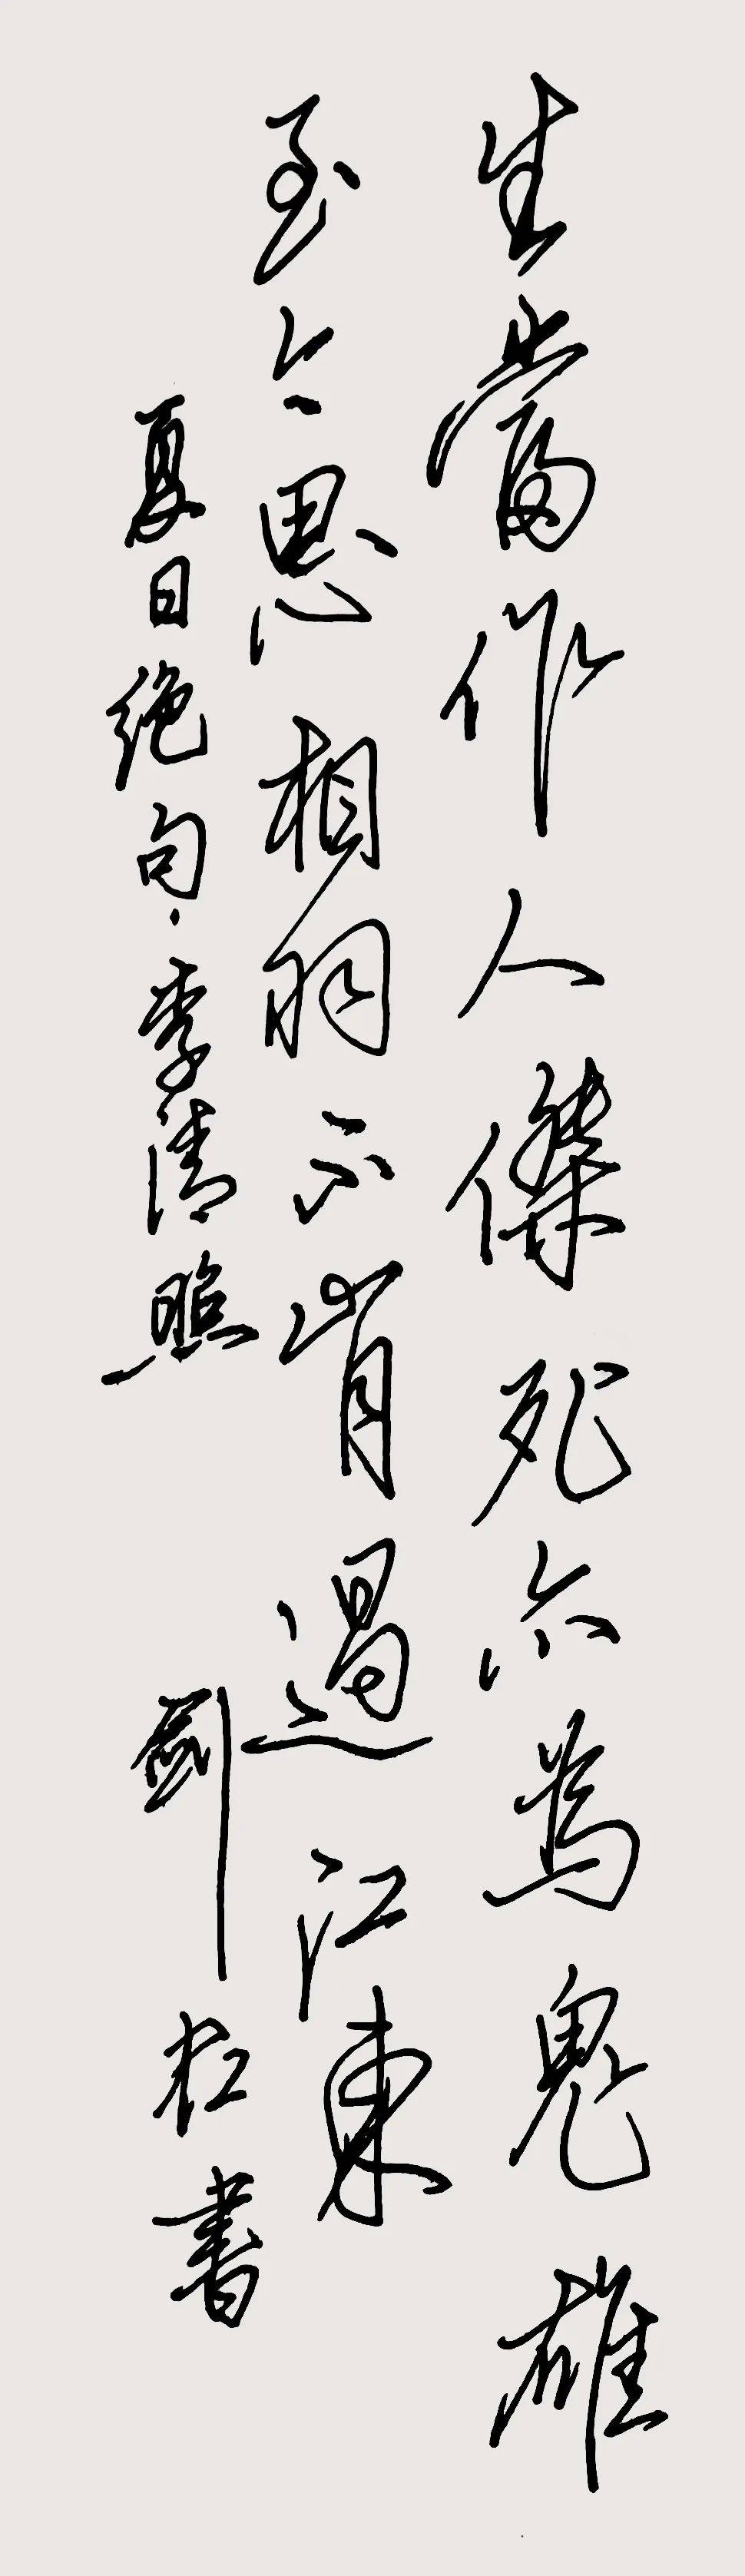 生當作人傑死亦為鬼雄
至今思相羽不肯過江東
夏日绝句·李清照
劍書